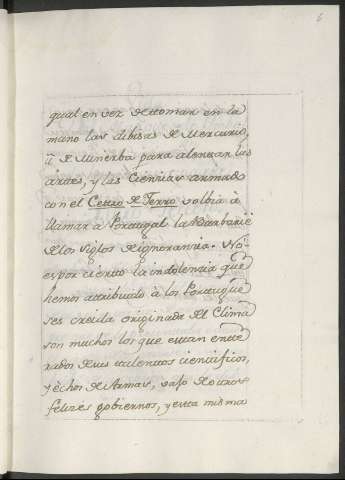 6
qual en vez de tomar en la
mano las dibisas de Mercurio,
ù de Minerba para alentar las
àrtes, y las Ciencias armado
con el Cetro de Ferro volbia à
llamar à Portugal la Barbarie
de los siglos de ignorancia. No
es por cierto la indolencia que
hemos atribuido à los Portugue
ses creida originada del Clima
son muchos los que estan ente
rados de sus talentos cientificos,
y èchos de Armas, vajo de otros
felizes gobiernos, y esta misma